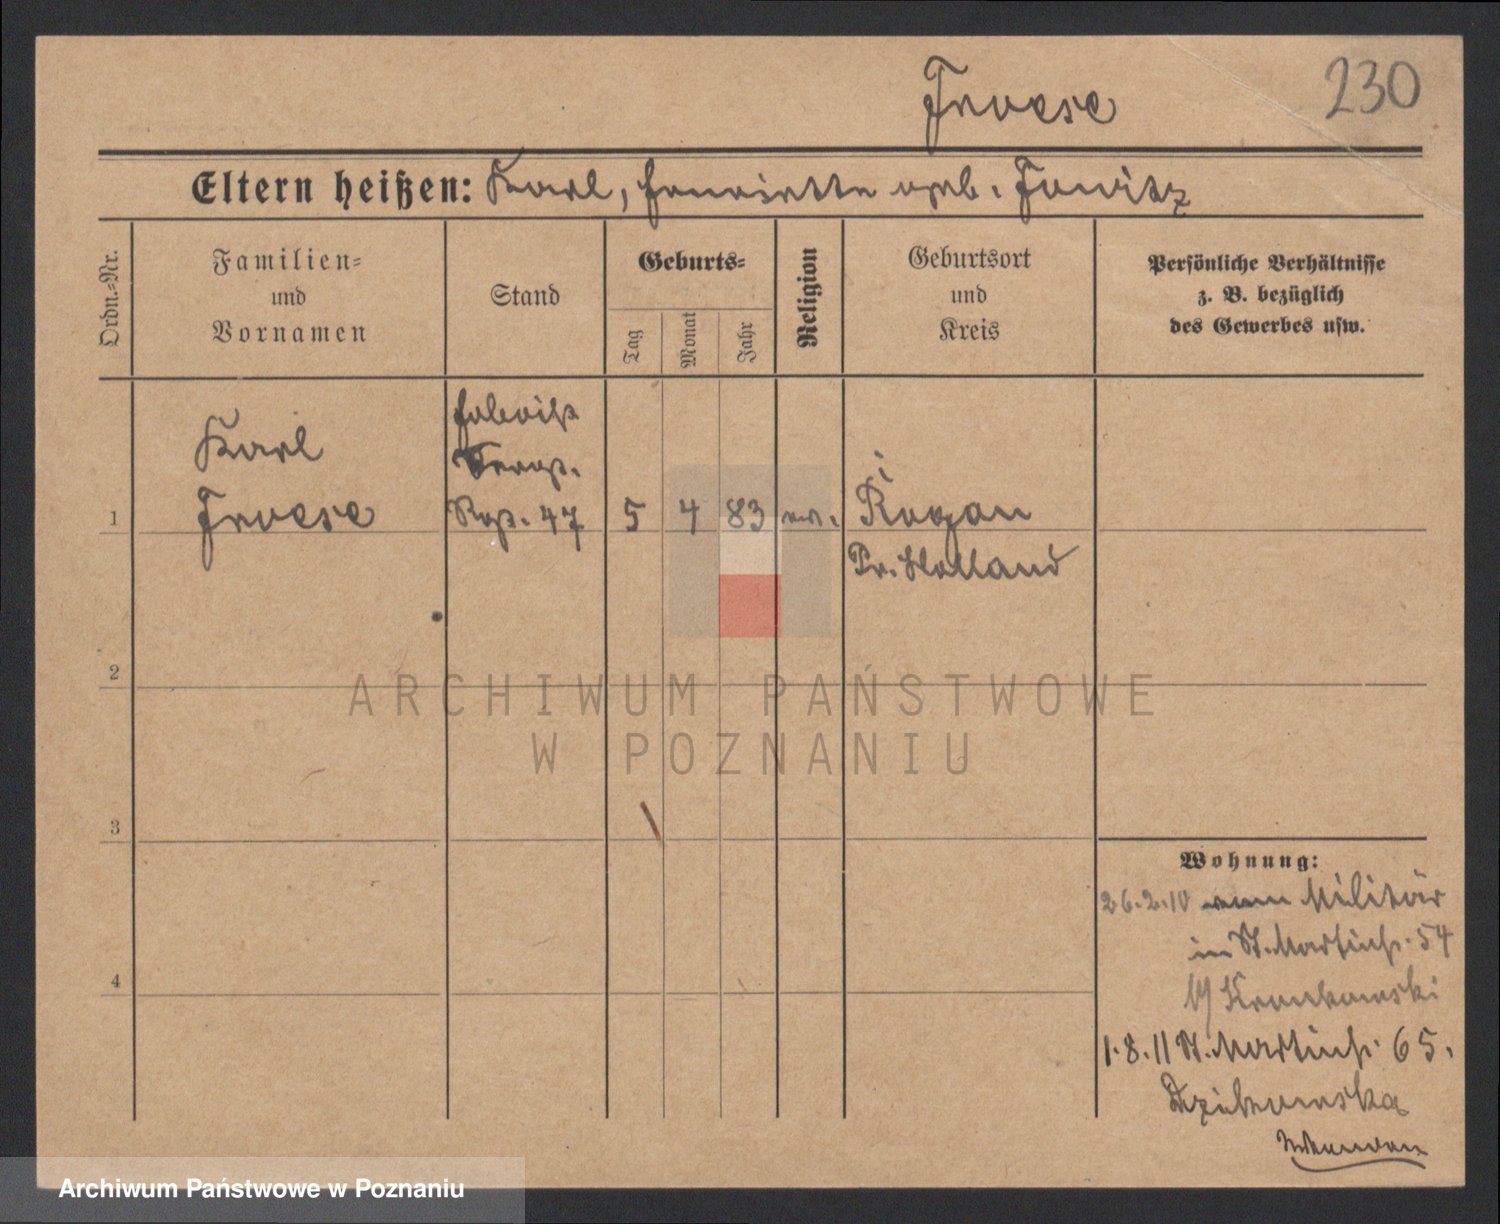 230
Froese
Eltern heißen: Karl, Henriette geb. Jowitz
Ordn.=Nr.
Familien=
und
Vornamen
Stand
Geburts=
Tag
Monat
Jahr
Religion
Geburtsort
und
Kreis
Persönliche Verhältnisse
z. B. bezüglich
des Gewerbes usw.
Karl
Froese
Sergt.
Rgt. 47
5 4 83 ev.
Rogau
Pr. Holland
1
2
3
4
Wohnung:
26.2.10 vom Militär
in St. Martinstr. 54
b/
1.8.11 St. Martinstr. 65.
ARCHIWUM PAŃSTWOWE
W POZNANIU
Archiwum Państwowe w Poznaniu